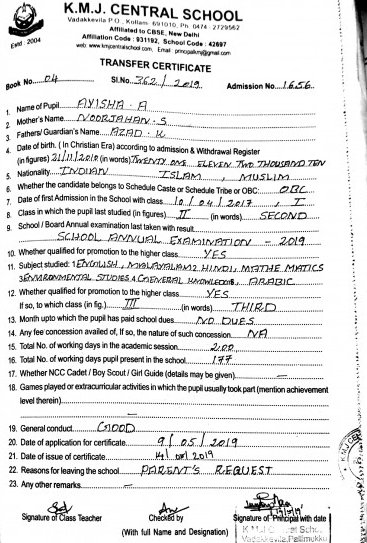 K.M.J. CENTRAL SCHOOL
Vadakkevila P.O., Kollam 691010, Ph: 0474 - 2729562
Affiliated to CBSE, New Delhi
Affiliation Code : 931192, School Code : 42697
web: www.kmjcentralschool.com, Email : principalkmj@gmail.com
Estd : 2004
TRANSFER CERTIFICATE
Book No. 04 Sl.No. 362/2019 Admission No. 1656
1. Name of Pupil AYISHA · A
2. Mother's Name NOORJAHAN · S
3. Fathers/ Guardian's Name AZAD · K
4. Date of birth. ( In Christian Era) according to admission & Withdrawal Register
(in figures) 21/11/2010 (in words) TWENTY ONE ELEVEN TWO THOUSAND TEN
5. Nationality INDIAN ISLAM, MUSLIM
6. Whether the candidate belongs to Schedule Caste or Schedule Tribe or OBC: OBC
7. Date of first Admission in the School with class 10/04/2017, I
8. Class in which the pupil last studied (in figures) II (in words) SECOND
9. School / Board Annual examination last taken with result
SCHOOL ANNUAL EXAMINATION - 2019
10. Whether qualified for promotion to the higher class YES
11. Subject studied: 1 ENGLISH, MALAYALAM 2 HINDI, MATHEMATICS
3 ENVIRONMENTAL STUDIES 4 GENERAL KNOWLEDGE, ARABIC
12. Whether qualified for promotion to the higher class YES
If so, to which class (in fig.) III (in words) THIRD
13. Month upto which the pupil has paid school dues NO DUES
14. Any fee concession availed of, If so, the nature of such concession NA
15. Total No. of working days in the academic session 200
16. Total No. of working days pupil present in the school 177
17. Whether NCC Cadet / Boy Scout / Girl Guide (details may be given) —
18. Games played or extracurricular activities in which the pupil usually took part (mention achievement
level therein) —
19. General conduct GOOD
20. Date of application for certificate 9/05/2019
21. Date of issue of certificate 14/05/2019
22. Reasons for leaving the school PARENT'S REQUEST
23. Any other remarks —
Signature of Class Teacher
Checked by
(With full Name and Designation)
Signature of Principal with date
K M J Central Scho
Vadakkevila, Pallimukku
K.M.J